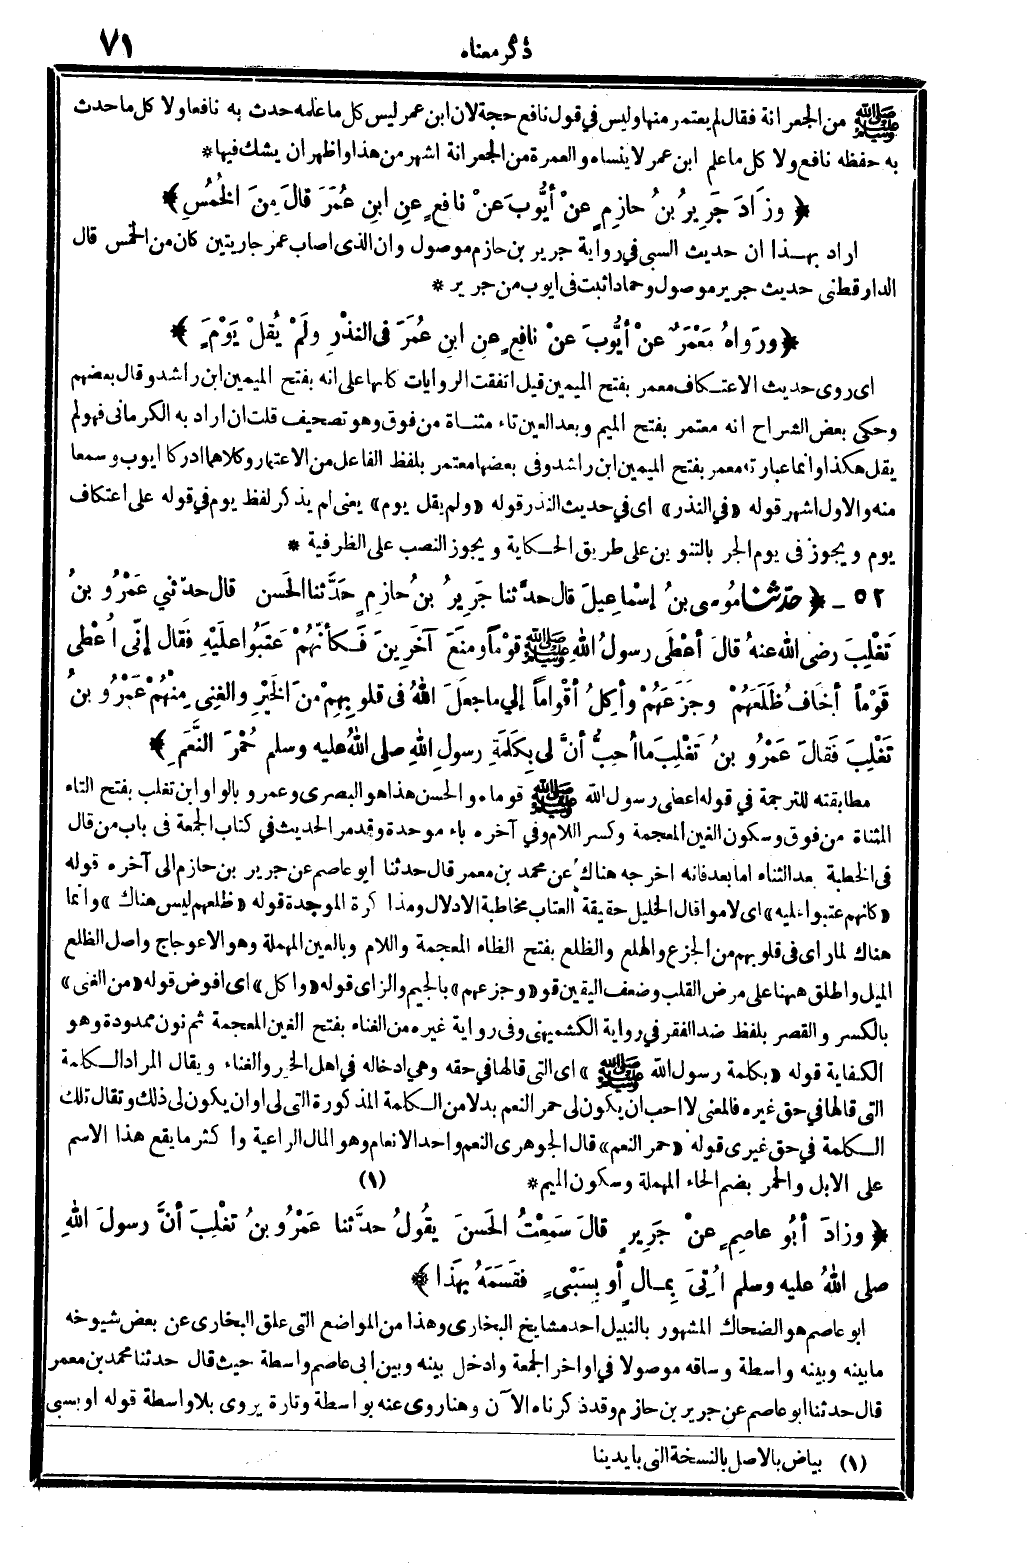 ذكر معناه ٧١
ﷺ من الجعرانة فقال لم يعتمر منها وليس في قول نافع حجة لان ابن عمر ليس كل ما علمه حدث به نافعا ولا كل ما حدث
به حفظه نافع ولا كل ما علم ابن عمر لا ينساه والعمرة من الجعرانة اشهر من هذا واظهر ان يشك فيها *
﴿ وزَادَ جَرِيرُ بنُ حازِمٍ عنْ أيُّوبَ عنْ نافِعٍ عنِ ابنِ عُمَرَ قالَ مِنَ الخُمُسِ ﴾
اراد بهـذا ان حديث السبى فى رواية جرير بن حازم موصول وان الذى اصاب عمر جاريتين كان من الخمس قال
الدارقطنى حديث جرير موصول وحماد اثبت فى ايوب من جرير *
﴿ ورَواهُ مَعْمَرٌ عنْ أيُّوبَ عنْ نافِعٍ عنِ ابنِ عُمَرَ فى النذْرِ ولَمْ يُقلْ يَوْمَ ﴾
اى روى حديث الاعتـكاف معمر بفتح الميمين قيل اتفقت الروايات كلها على انه بفتح الميمين ابن راشد وقال بعضهم
وحكى بعض الشراح انه معتمر بفتح الميم وبعد العين تاء مثنـاة من فوق وهو تصحيف قلت ان اراد به الكرمانى فهو لم
يقل هكذا وانما عبارته معمر بفتح الميمين ابن راشد وفى بعضها معتمر بلفظ الفاعل من الاعتمار وكلاهما ادركا ايوب وسمعا
منه والاول اشهر قوله «في النذر» اى في حديث النذر قوله «ولم يقل يوم» يعنى لم يذكر لفظ يوم في قوله على اعتكاف
يوم ويجوز فى يوم الجر بالتنوين على طريق الحـكاية ويجوز النصب على الظرفية *
٥٢ ـ ﴿ حدّثنا مُوسى بنُ إسْماعِيلَ قال حدَّثنا جَرِيرُ بنُ حازِمٍ حَدَّثنا الحَسن قال حدّثني عَمْرُو بنُ
تَغْلِبَ رضى اللهُ عنهُ قالَ أعْطَى رسولُ اللهِ ﷺ قوْماً ومنَعَ آخَرِينَ فَـكأنَّهُمْ عَتَبُوا علَيْهِ فَقَال إنّى اُعْطِى
قَوْماً أخَافُ ظَلَعَهُمْ وجَزَعَهُمْ وأكِلُ أقْواماً إلي ما جعَلَ اللهُ فى قلوبِهِمْ منَ الخَيْرِ والغِنى مِنْهُمْ عَمْرُو بنُ
تَغْلِبَ فَقالَ عَمْرُو بنُ تَغْلِبَ ما أحِبُّ أنَّ لى بِكَلِمَةِ رسولِ اللهِ صلى اللهُ عليه وسلم حُمْرَ النَّعَمِ ﴾
مطابقته للترجمة في قوله اعطى رسول الله ﷺ قوماء والحسن هذا هو البصرى وعمرو بالواو ابن تغلب بفتح التاء
المثناة من فوق وسكون الغين المعجمة وكسر اللام وفي آخره باء موحدة وقد مر الحديث في كتاب الجمعة فى باب من قال
فى الخطبة بعد الثناء اما بعد فانه اخرجه هناك عن محمد بن معمر قال حدثنا أبو عاصم عن جرير بن حازم الى آخره قوله
«كانهم عتبوا عليه» اى لاموا قال الخليل حقيقة العتاب مخاطبة الادلال ومذاكرة الموجدة قوله «ظلعهم ليس هناك» وانما
هناك لما راى فى قلوبهم من الجزع والهلع والظلع بفتح الظاء المعجمة واللام وبالعين المهملة وهو الاعوجاج واصل الظلع
الميل واطلق ههنا على مرض القلب وضعف اليقين قو «وجزعهم» بالجيم والزاى قوله «واكل» اى افوض قوله «من الغنى»
بالكسر والقصر بلفظ ضد الفقر في رواية الكشميهنى وفى رواية غيره من الغناء بفتح الغين المعجمة ثم نون ممدودة وهو
الكفاية قوله «بكلمة رسول الله ﷺ» اى التى قالها في حقه وهي ادخاله في اهل الخير والغناء ويقال المراد الـكلمة
التى قالها في حق غيره فالمعنى لا احب ان يكون لى حمر النعم بدلا من الـكلمة المذكورة التى لى او ان يكون لى ذلك وتقال تلك
الـكلمة في حق غيرى قوله «حمر النعم» قال الجوهرى النعم واحد الانعام وهو المال الراعية واكثر ما يقع هذا الاسم
على الابل والحمر بضم الحاء المهملة وسكون الميم * (١)
﴿ وزادَ أبُو عاصِمٍ عنْ جَرِيرٍ قالَ سَمِعْتُ الحَسَنَ يقُولُ حدَّثنا عَمْرُو بنُ تغْلِبَ أنَّ رسولَ اللهِ
صلى اللهُ عليه وسلم اُتِىَ بِمـالٍ أو بِسَبْىٍ فقَسَمَهُ بِهَذا ﴾
ابو عاصم هو الضحاك المشهور بالنبيل احد مشايخ البخارى وهذا من المواضع التى علق البخارى عن بعض شيوخه
ما بينه وبينه واسطة وساقه موصولا في اواخر الجمعة وادخل بينه وبين ابى عاصم واسطة حيث قال حدثنا محمد بن معمر
قال حدثنا ابو عاصم عن جرير بن حازم وقد ذكرناه الآن وهنا روى عنه بواسطة وتارة يروى بلا واسطة قوله او بسبى
(١) بياض بالاصل بالنسخة التى بايدينا